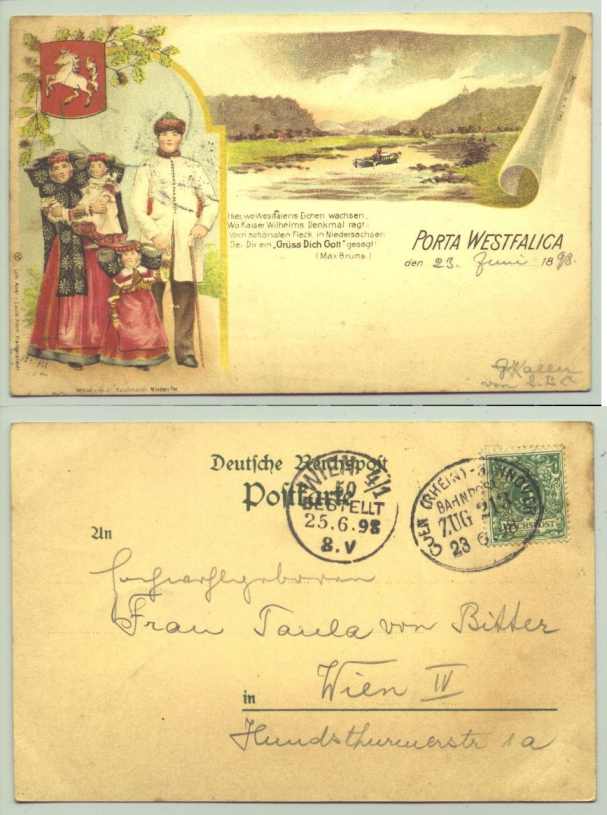 Hier, wo Westfalens Eichen wachsen,
Wo Kaiser Wilhelms Denkmal ragt:
Vom schönsten Fleck in Niedersachsen
Sei Dir ein „Grüss Dich Gott" gesagt!
(Max Bruns.)
PORTA WESTFALICA
den 23. Juni 1898.
von
Deutsche Reichspost
Postkarte
WIEN 4/1
BESTELLT
25.6.98
8.V
(RHEIN)-
BAHNPOST
ZUG 213
23 6
REICHSPOST
An
Hochwohlgeboren
Frau Paula von Bitter
in Wien IV
Hundsthurmerstr 1a